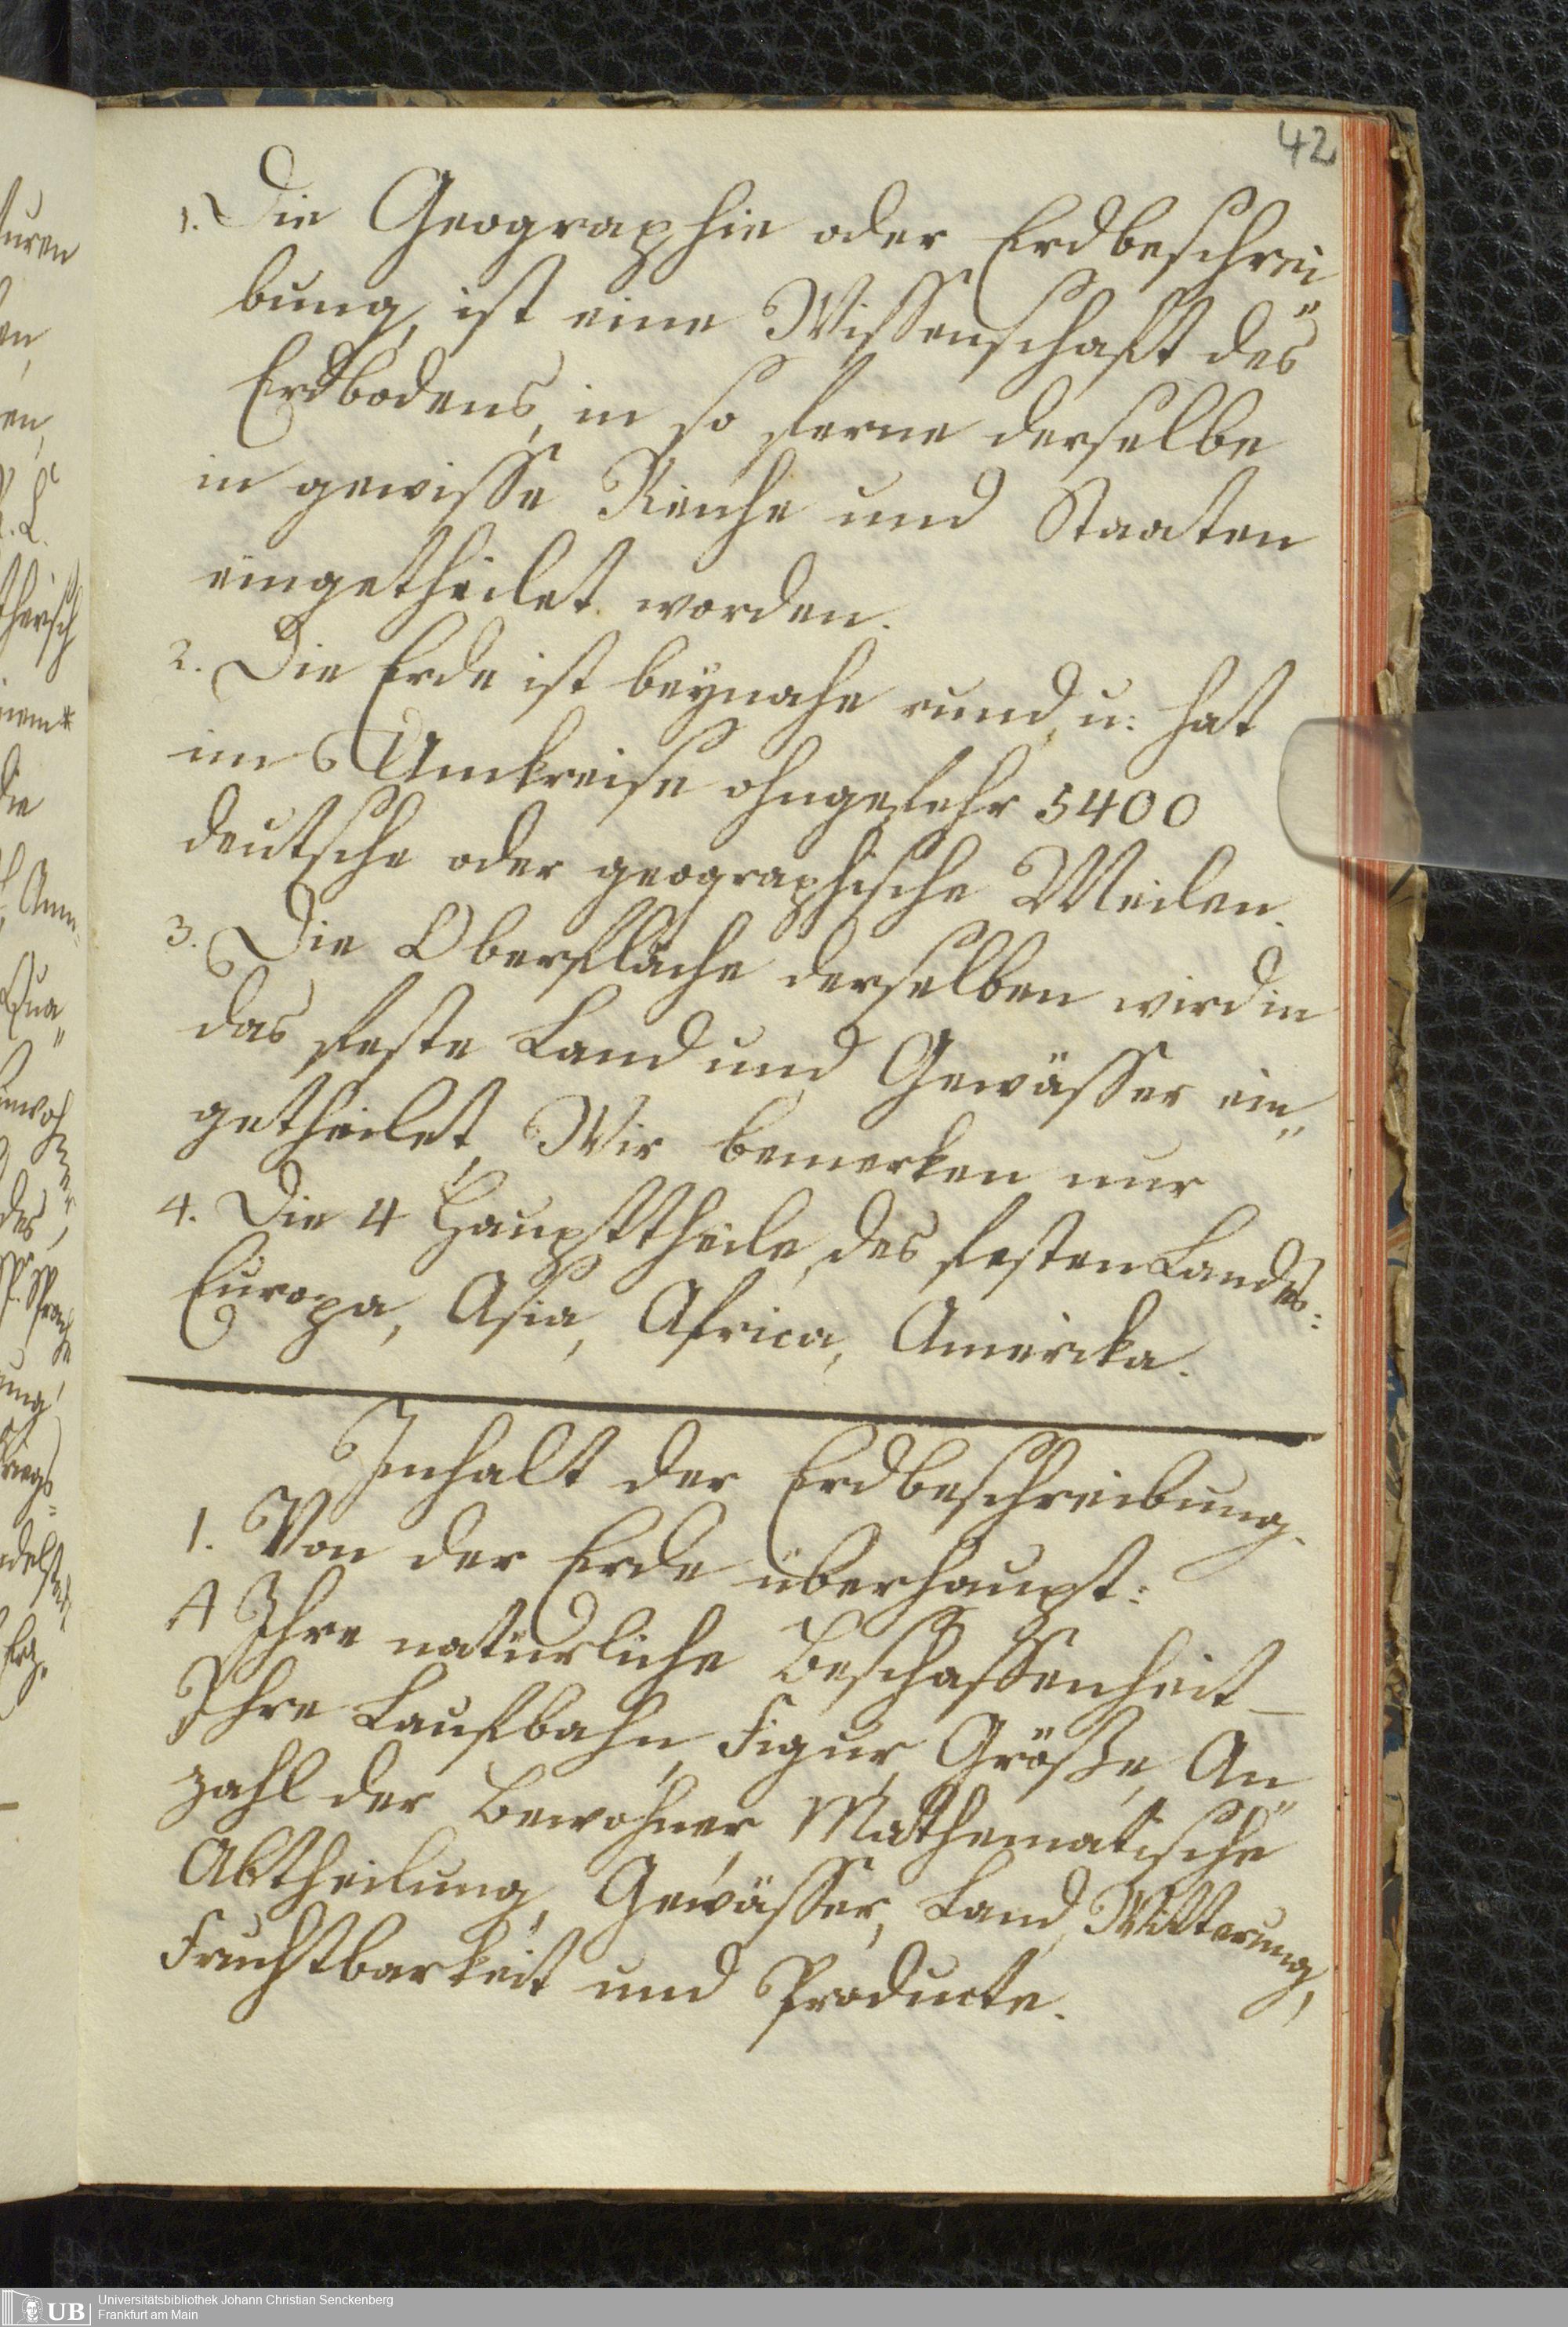 42
1. Die Geographie oder Erdbeschrei„
bung, ist eine Wissenschaft des
Erdbodens, in so ferne derselbe
in gewisse Reiche und Staaten
eingetheilet worden.
2. Die Erde ist beynahe rund, u: hat
im Umkreise ohngefehr 5400
deutsche oder geographische Meilen.
3. Die Oberfläche derselben wird in
das feste Land und Gewässer ein„
getheilet, Wir bemerken nur
4. Die 4 Haupttheile, des festen Landes:
Europa, Asia, Africa, Amerika.
Inhalt der Erdbeschreibung.
1. Von der Erde überhaupt:
A Ihre natürliche Beschaffenheit_
Ihre Laufbahn, Figur, Größe, An„
zahl der Bewohner, Mathematische
Abtheilung, Gewässer, Land, Witterung,
Fruchtbarkeit und Producte.
UB
Universitätsbibliothek Johann Christian Senckenberg
Frankfurt am Main